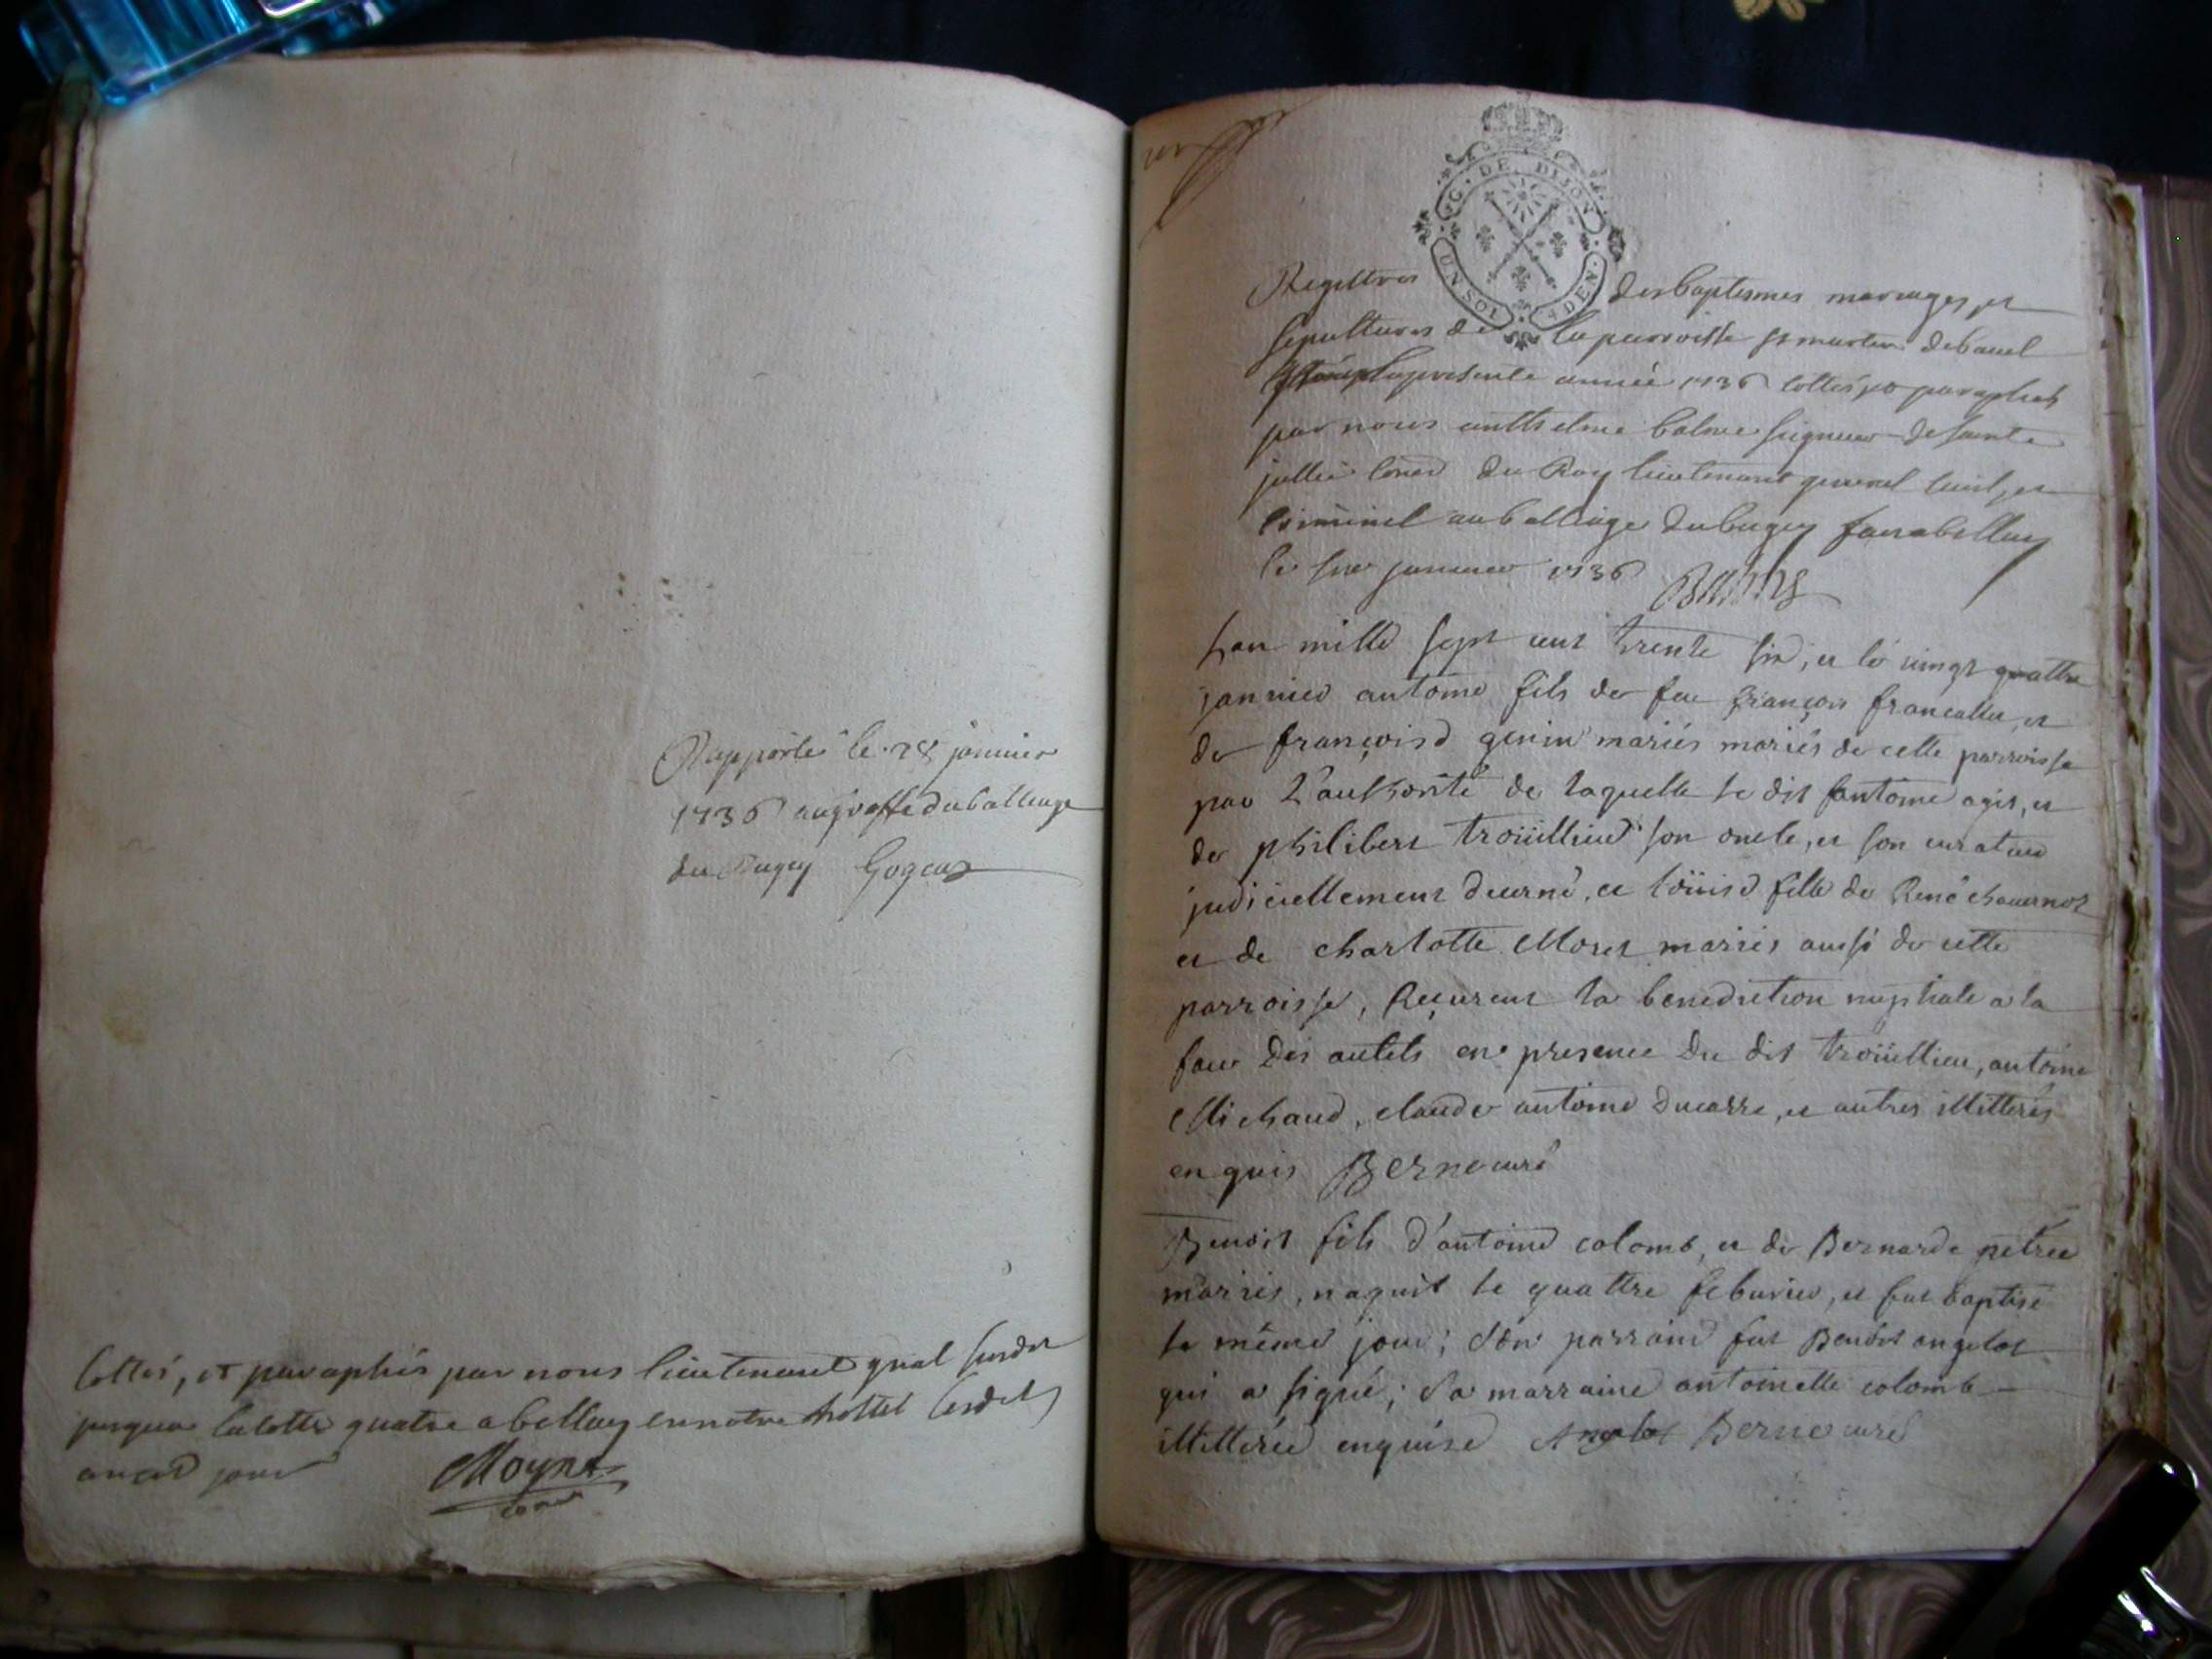 Rapporté le 28 janvier
1736 au greffe du balliage
du Bugey
Cottés, et paraphés par nous lieutenant gnal susdit
jusque la cotte quatre a belley en notre hottel lesdits
an et jour
Moyne
G. DE DIJON
UN SOL 4 DEN.
Registres des baptesmes mariages, et
sepultures de la parroisse st martin de bavel
la presente année 1736 cottés et paraphés
par nous anthelme balme seigneur de sainte
jullie coner du Roy lieutenant general civil, et
criminel au balliage du bugey fait a belley
le janvier 1736
Balme
L'an mille sept cent trente six, et le vingt quattre
janvier antoine fils de feu françois francallet, et
de françoise genin mariés mariés de cette parroisse
par l'authorité de laquelle le dit antoine agit, et
de philibert troüillieu son oncle, et son curateur
judiciellement decerné, et loüise fille de René chavernot
et de charlotte Moret mariés aussi de cette
parroisse, Reçurent la benediction nuptiale a la
face des autels en presence du dit troüillieu, antoine
Michaud, claude antoine ducarre, et autres illitterés
enquis Berne curé
Benoit fils d'antoine colomb, et de Bernarde
mariés, naquit le quattre feburier, et fut baptisé
le même jour; son parrain fut Benoit angelot
qui a signé; sa marraine antoinette colomb
illitterée enquise Angelot Berne curé